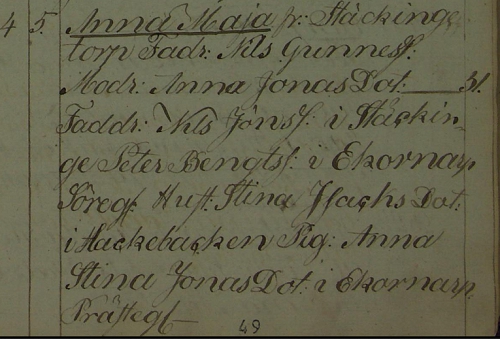 4 5. Anna Maja fr: Stäckinge
torp Fadr: Nils Gunness:
Modr: Anna Jonas Dot: 31.
Faddr: Nils Jönss: i Stäckin-
ge Peter Bengtss: i Ekornarp
Söregf Hust: Stina Isachs Dot:
i Hackebacken Pig: Anna
Stina Jonas Dot: i Ekornarp
Prästeg
49